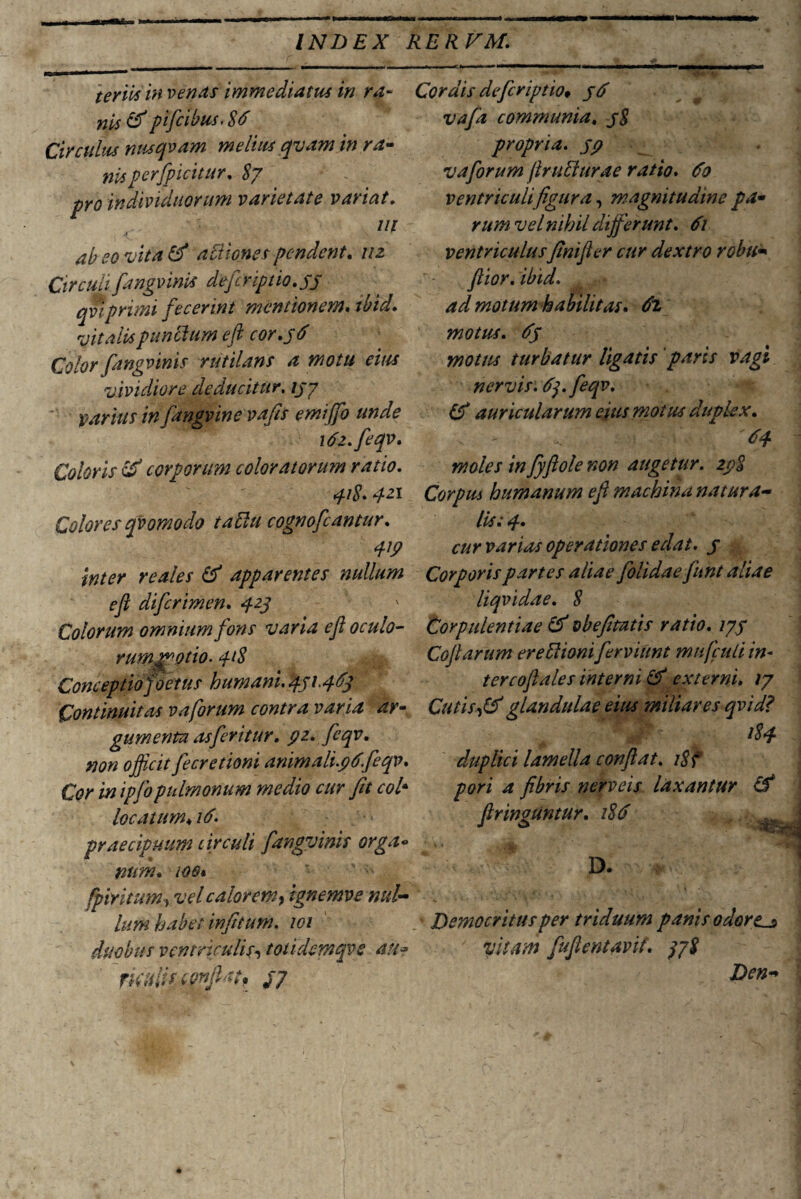 INDEX RERVM.
teriis in venas immediatus in ra-
nis & piſcibus. 86
Circulus nusqvam melius qvam in ra-
nis perſpicitur. 87
pro individuorum varietate variat.
111
ab eo vita & actiones pendent. 112
Circuli ſangvinis deſcriptio. 55
qvi primi fecerint mentionem. ibid.
vitalis punctum eſt cor. 56
Color ſangvinis rutilans a motu eius
vividiore deducitur. 157
varius in ſangvine vaſis emiſſo unde
162. ſeqv.
Coloris & corporum coloratorum ratio.
418. 421
Colores qvomodo tactu cognoſcantur.
419
inter reales & apparentes nullum
eſt diſcrimen. 423
Colorum omnium fons varia eſt oculo-
rum motio. 418
Conceptio foetus humani. 451. 463
Continuitas vaſorum contra varia ar-
gumenta asſeritur. 92. ſeqv.
non officit ſecretioni animali. 96. ſeqv.
Cor in ipſo pulmonum medio cur ſit col-
locatum. 16.
praecipuum circuli ſangvinis orga-
num. 100.
ſpiritum, vel calorem, ignemve nul-
lum habet inſitum. 101
duobus ventriculis, totidemqve au-
riculis conſtat. 57
Cordis deſcriptio. 56
vaſa communia. 58
propria. 59
vaſorum ſtructurae ratio. 60
ventriculi figura, magnitudine pa-
rum vel nihil differunt. 61
ventriculus ſiniſter cur dextro robu-
ſtior. ibid.
ad motum habilitas. 62
motus. 65
motus turbatur ligatis paris vagi
nervis. 63. ſeqv.
& auricularum eius motus duplex.
64
moles in ſyſtole non augetur. 298
Corpus humanum eſt machina natura-
lis. 4.
cur varias operationes edat. 5
Corporis partes aliae ſolidae ſunt aliae
liqvidae. 8
Corpulentiae & obeſitatis ratio. 175
Coſtarum erectioni ſerviunt muſculi in-
tercoſtales interni & externi. 17
Cutis, & glandulae eius miliares qvid?
184
duplici lamella conſtat. 185
pori a fibris nerveis laxantur &
ſtringuntur. 186
D.
Democritus per triduum panis odore
vitam ſuſtentavit. 378
Den-